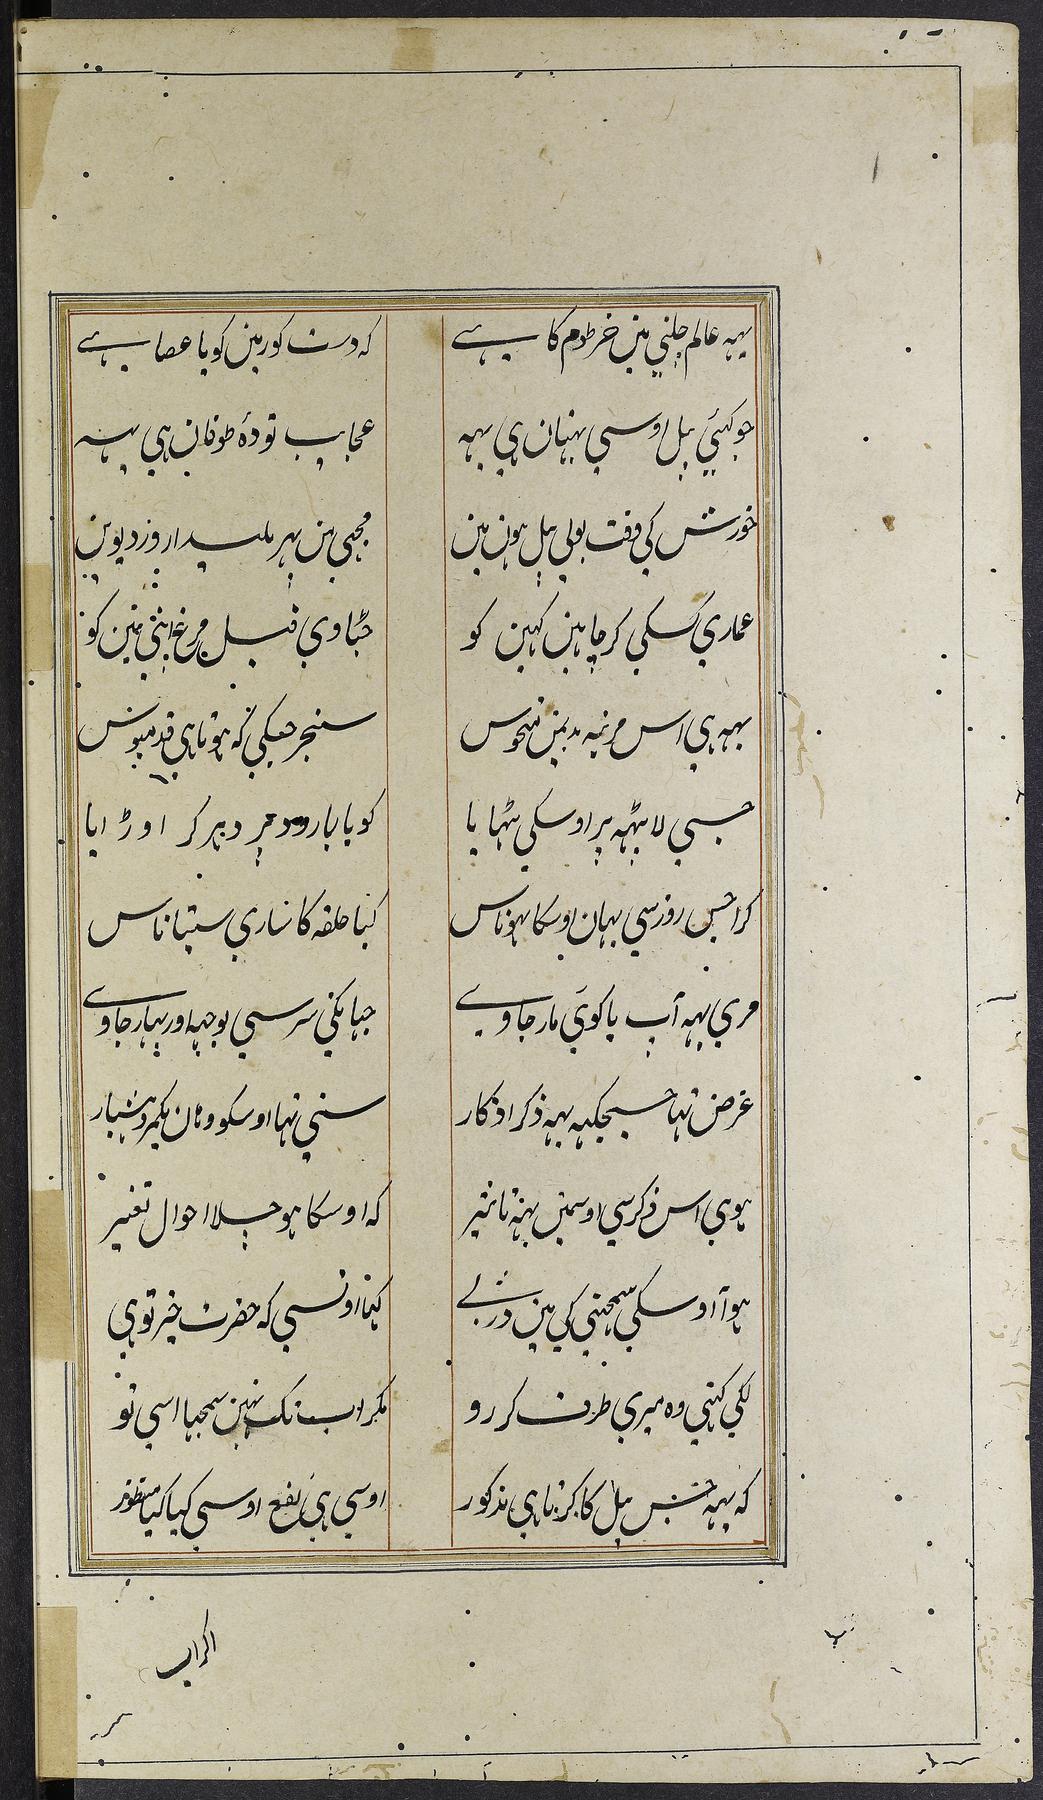 یہہ عالم چلنی مین خرطوم کا ہے
کہ دست کور مین کویا عصا ہے
جو کہئی پیل اوسی بہتان ہی یہہ
عجایب تودۂ طوفان ہی یہہ
خورش کی وقت بولی پیل ہون مین
مجھی من بہر ملیدا روز دیوین
عماری کسکی کر چاہین کہین کو
جتاوی فیل مرغ اپنی تئین کو
یہہ ہی اس مرتبہ بدیمن منحوس
سنیچر جسکی کہ ہوتا ہی قدمبوس
جسی لا پیٹہہ پر اوسکی بٹہایا
کویا بارود پر دہر کر اوڑایا
کرا جس روز سی یہان اوسکا ہوناس
کیا حلقہ کا ساری ستیاناس
مری یہہ آپ یا کوئی مار جاوے
جہانکی سر سی بوجہہ اور بہار جاوے
غرض تہا جسجکہہ یہہ ذکر اذکار
سنی تہا اوسکو وہان یکمرد ہشیار
ہوی اس ذکر سی اوسمین یہہ تاثیر
کہ اوسکا ہو چلا احوال تغییر
ہوا اوسکی سمجہنی کی مین درپی
کہا اونسی کہ حضرت خیر تو ہی
لکی کہنی وہ میری طرف کر رو
مکر اب تک نہین سمجہا اسی تو
کہ یہہ جس پیل کا کرتا ہی مذکور
اوسی ہی نفع اوسی کیا کیا منظور
اکر اب